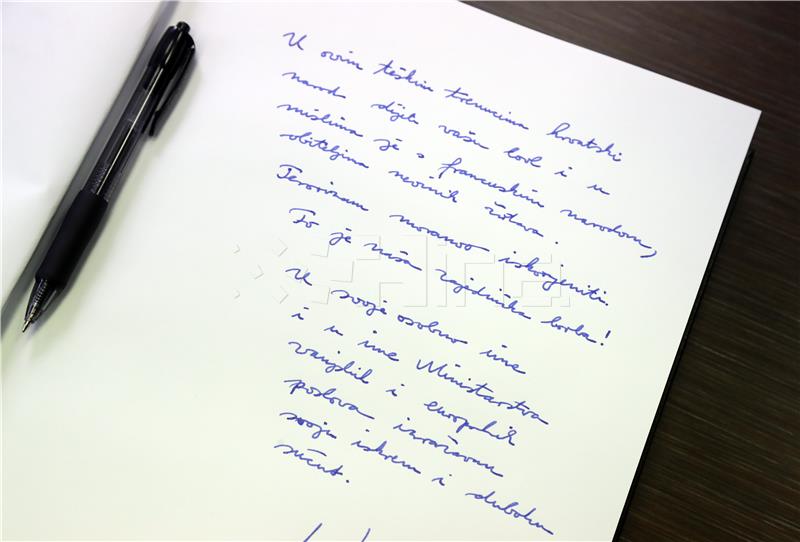 U ovim teškim trenucima hrvatski
narod dijeli vašu bol i u
mislima je s francuskim narodom,
obiteljima nevinih žrtava.
Terorizam moramo iskorijeniti.
To je naša zajednička borba!
U svoje osobno ime
i u ime Ministarstva
vanjskih i europskih
poslova izražavam
svoju iskrenu i duboku
sućut.
Hina